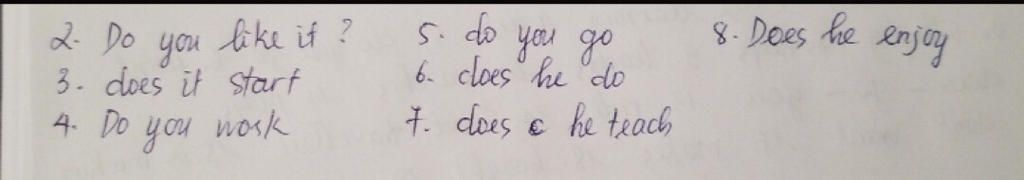 2. Do you like it ?
3. does it start
4. Do you work
5. do you go
6. does he do
7. does he teach
8. Does he enjoy